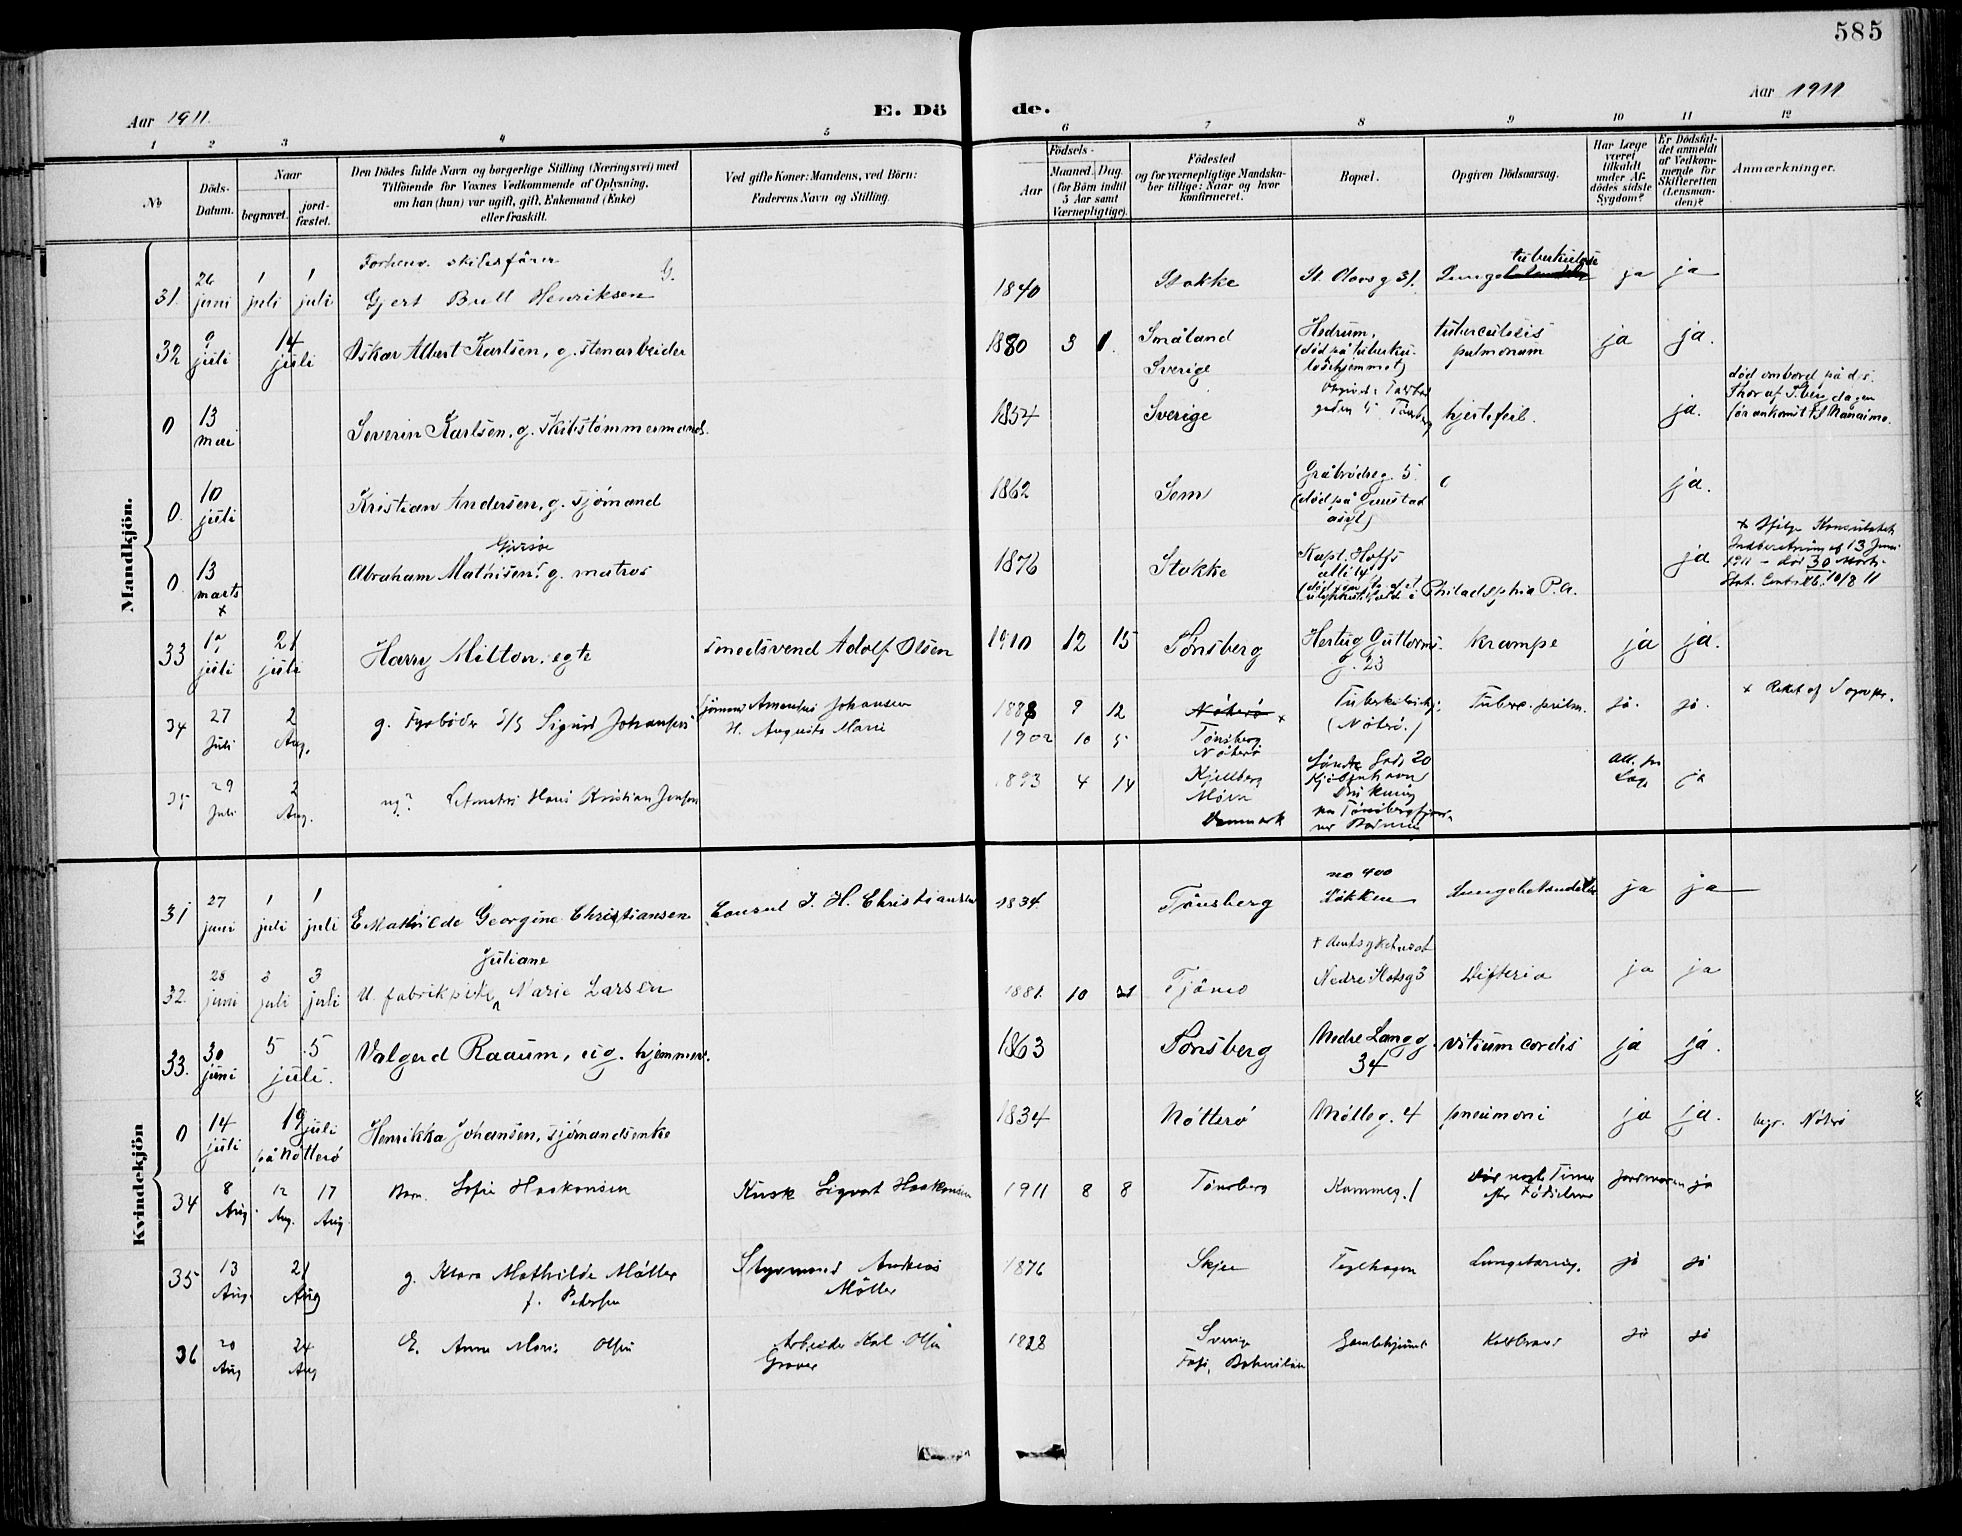 585
Aar 1911. E. Dö de. Aar 1911
1 2 3 4 5 6 7 8 9 10 11 12
No
Döds-Datum.
Naar
begravet.
jord-fæstet.
Den Dödes fulde Navn og borgerlige Stilling (Næringsvei) med
Tilföiende for Voxnes Vedkommende af Oplysning,
om han (hun) var ugift, gift, Enkemand (Enke)
eller fraskilt.
Ved gifte Koner: Mandens, ved Börn:
Faderens Navn og Stilling.
Födsels-
Aar
Maaned. Dag.
(for Börn indtil
5 Aar samt
Værnepligtige).
Födested
og for værnepligtige Mandska-
ber tillige: Naar og hvor
konfirmeret.
Bopæl.
Opgiven Dödsaarsag.
Har Læge
været
tilkaldt
under Af-
dödes sidste
Sygdom?
Er Dödsfal-
det anmeldt
af Vedkom-
mende for
Skifteretten
(Lensman-
den)?
Anmærkninger.
Mandkjön.
31. 26 juni 1 juli 1 juli Forhenv. skibsfører G.
Gjert Bull Henriksen 1840 Stokke St. Olavsg 31. Lunge tuberkulose ja ja
32 9 juli 14 juli Oskar Albert Karlsen, g. stenarbeider 1880 3 1. Småland Sverige Hedrum. (død på tuberku-losehjemmet) tuberculosis pulmonum ja ja.
0 13 mai Severin Karlsen, g. skibstømmermand. 1854 Sverige Tønsberg hjertefeil. ja. død ombord på d/s. Thor af Tbg. dagen før ankomst til Nanaimo.
0. 10 juli Kristian Andersen, g. sjømand 1862 Sem Gråbrødreg. 5. (død på Gaustad asyl) ja.
0 13 marts x Abraham Mathisen g. matros 1876 Stokke Kapt. Hoffs alle 14 Philadelphia P.A. ja
x Ifølge Konsulatets Indberetning af 13 Juni 1911 - død 30 Marts. 10/8 11
33 juli 21 juli Harry Milton, egte smedsvend Adolf Olsen 1910 12 15 Tønsberg Hertug Guttorms g. 23 krampe ja ja.
34 27 Juli 2 Aug. g. Fyrbøder Sigurd Johansen Amandus Johansen H. Augusta Marie 1888 9 12 Nøterø x Tønsberg (Nøterø.) Tuberc. pulm. ja. ja.
1902 10 5 Nøterø
35 29 Juli 2 Aug. ug. Hans Kristian Jensen 1893 4 14 Danmark Drukning ja
Kvindekjön
31 27 juni 1 juli 1 juli E Mathilde Georgine Christiansen Consul J. H. Christiansen 1834. Tønsberg no 400 Løkken Lungebetændelse ja ja
32. 28 juni 3 juli 3 juli U. fabrikpike Juliane Marie Larsen 1881. 10 21 Tjømø + Amtsykehuset Nedre Slotsg 3 Difteria ja ja
33. 30 juni 5 5 juli. Valgerd Raaum, ug. hjemmev. 1863 Tønsberg Nedre Langg. 34 vitium cordis ja ja.
0 14 juli 19 juli på Nøtterø Henrikka Johansen, sjømandsenke 1834 Nøtterø Mølleg. 4 pneumoni ja ja. begr. Nøterø
34 8 Aug 12 Aug. 17 Aug. Barn. Sofie Haakonsen Kusk Sigvart Haakonsen 1911 8 8 Tønsberg Kammeg. 1 død nogle Timer efter Fødselen jordmoren ja
35 13 Aug. 21 Aug g. Klara Mathilde Møller f. Petersen Styrmand Andreas Møller 1876 Skjee Teglhagen Lungetæring. ja ja
36 20 Aug 24 Aug E. Anna Marie Olsen Arbeider Olsen 1828 Sverige Gamlehjemmet Koldbrand ja ja